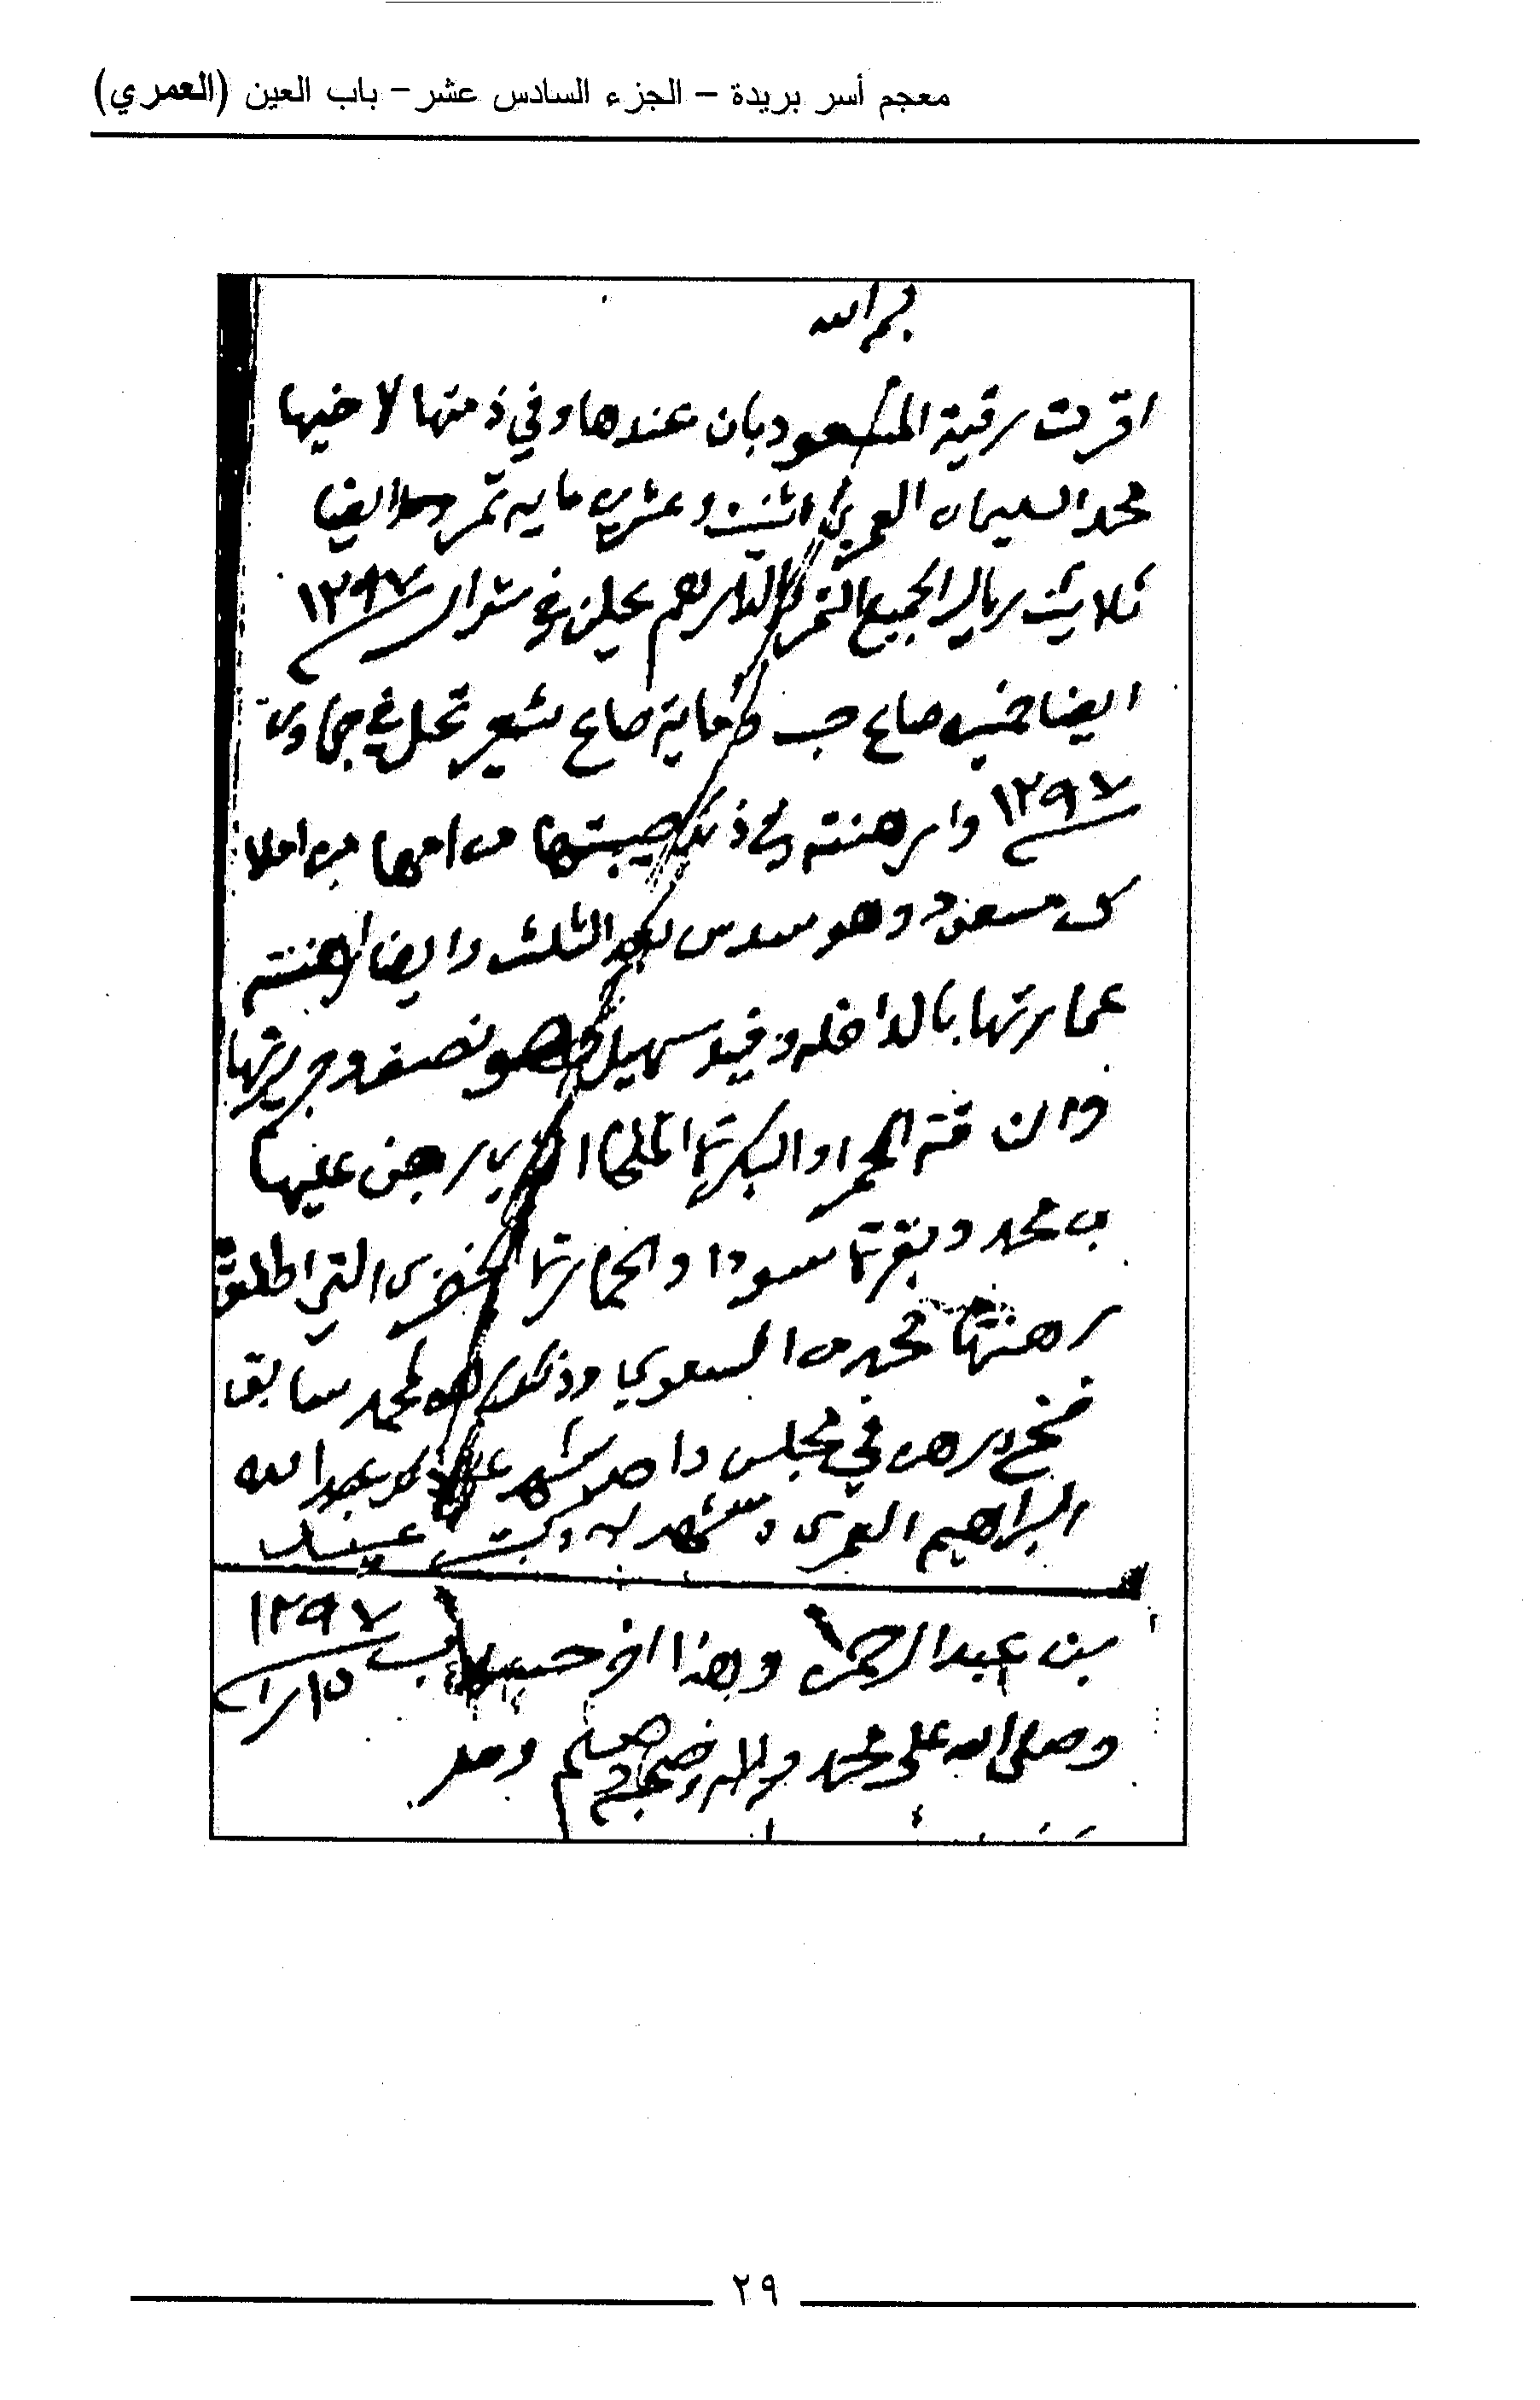 معجم أسر بريدة – الجزء السادس عشر – باب العين (العمري)
بسم الله
اقرت رقية المسعود بان عندها وفي ذمتها لاخيها
محمد السليمان العمري اثنين وعشرين مايه تمر وايضا
ثلاثين ريال الجميع التمر والدراهم يحلن في شوال ١٢٩٧
ايضا خمسين صاع حب وماية صاع شعير تحل في جمادى
١٢٩٧ وارهنته في ذلك من امها من املا
ك مسعود وهو سدس بعد الثلث وايضا ارهنته
عمارتها بالداخله وفيد سهيل وهو نصف وجريرتها
الحمرا والبكرتها رهن عليها
ب محمد وبقرتها سودا والحمارتها الخضرى التي اطلق
رهنتها محمد السعوي وذلك لمحمد سابق
رهن في مجلس واحد شهد على ذلك عبدالله
البراهيم العمرى وشهد به وكتب
بن عبدالرحمن وهذا اخر حساب ١٢٩٧
١٥ را
وصلى الله على محمد واله وصحبه وسلم
٢٩